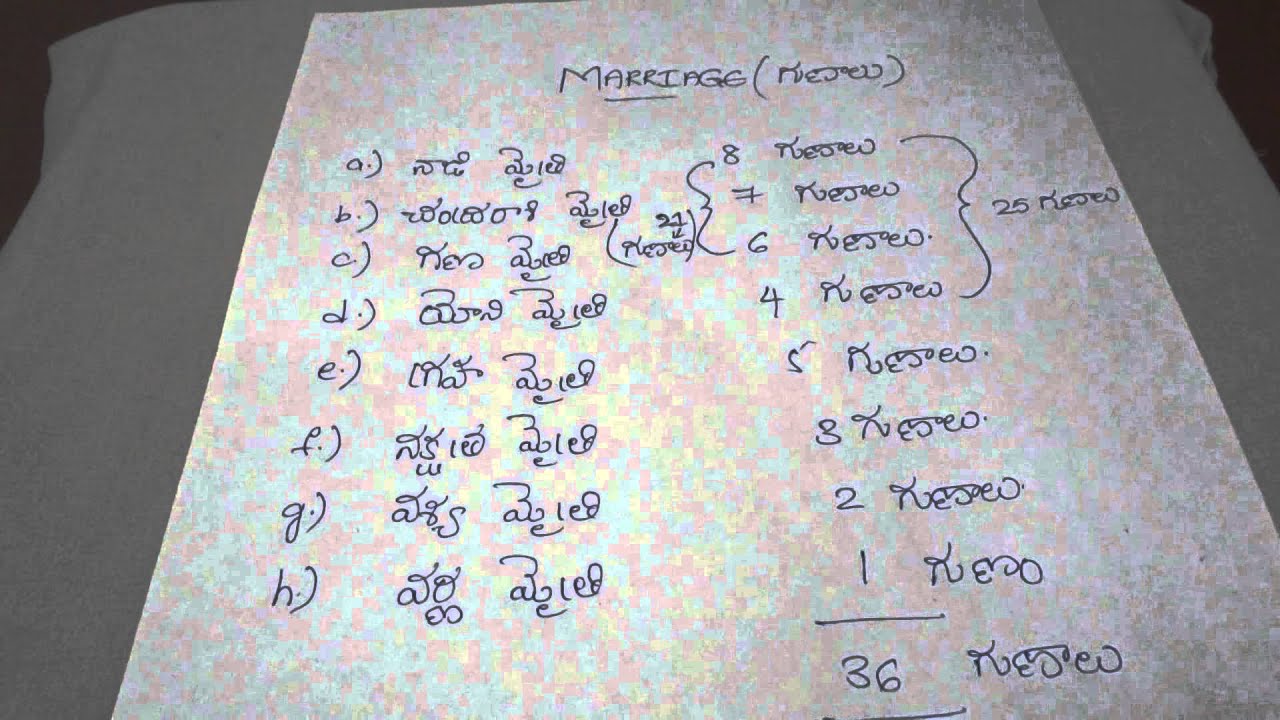 MARRIAGE (గుణాలు)
a.) నాడి మైత్రి 8 గుణాలు
b.) చంద్రరాశి మైత్రి 7 గుణాలు 25 గుణాలు
c.) గణ మైత్రి (21 గుణాలు) 6 గుణాలు.
d.) యోని మైత్రి 4 గుణాలు
e.) గ్రహ మైత్రి 5 గుణాలు.
f.) నక్షత్ర మైత్రి 3 గుణాలు.
g.) వశ్య మైత్రి 2 గుణాలు.
h.) వర్ణ మైత్రి 1 గుణం
36 గుణాలు